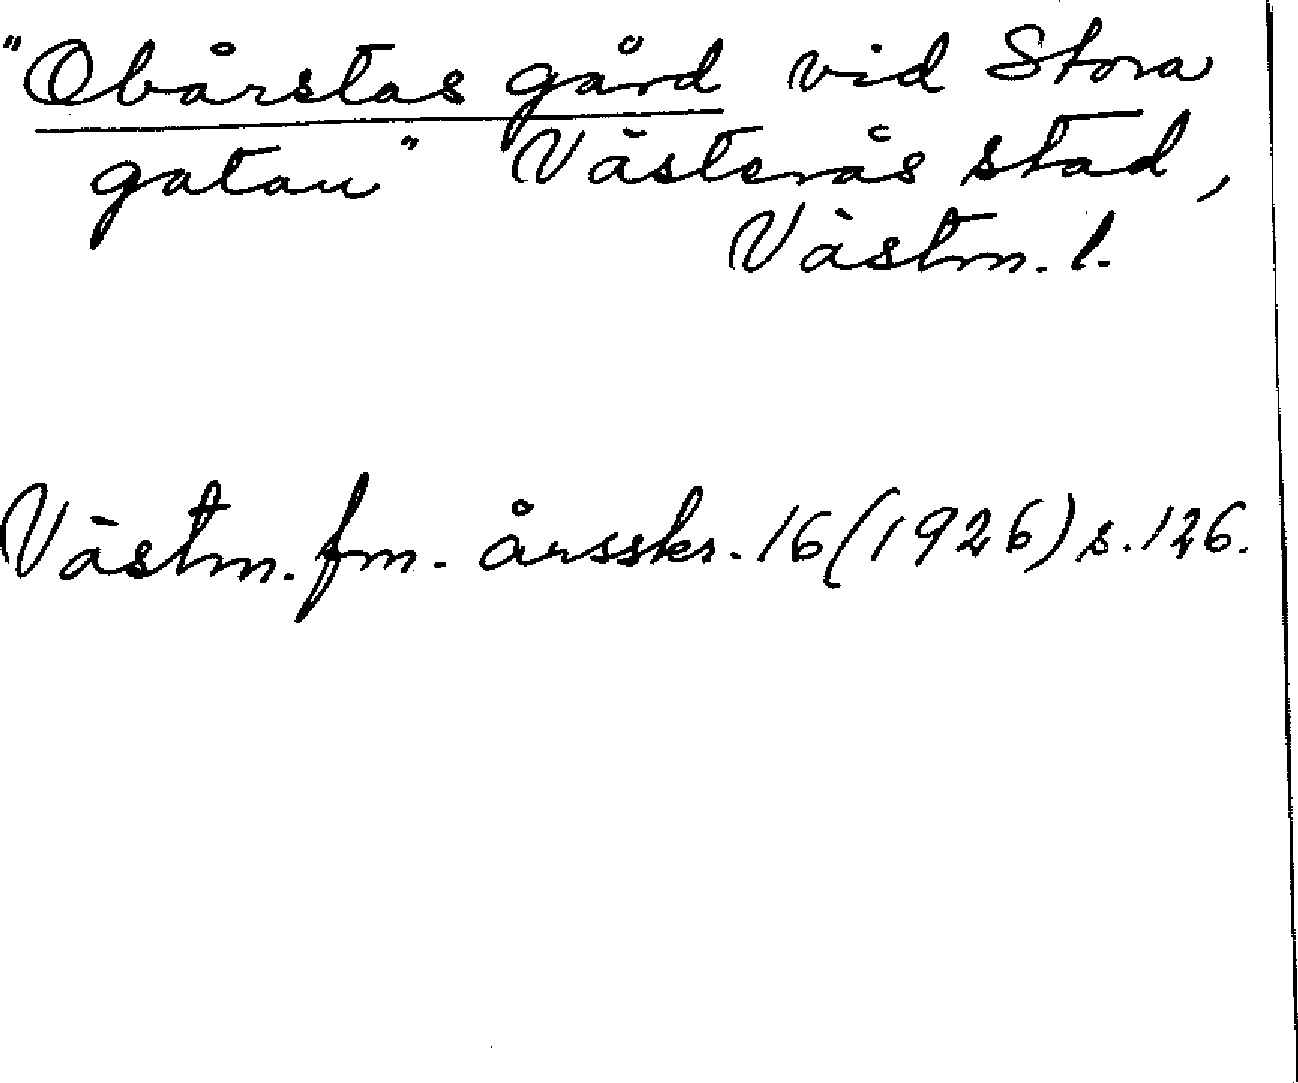 "Obårstas gård vid Stora
gatan" Västerås stad,
Västm. l.
Västm. fm. årsskr. 16 (1926) s. 126.